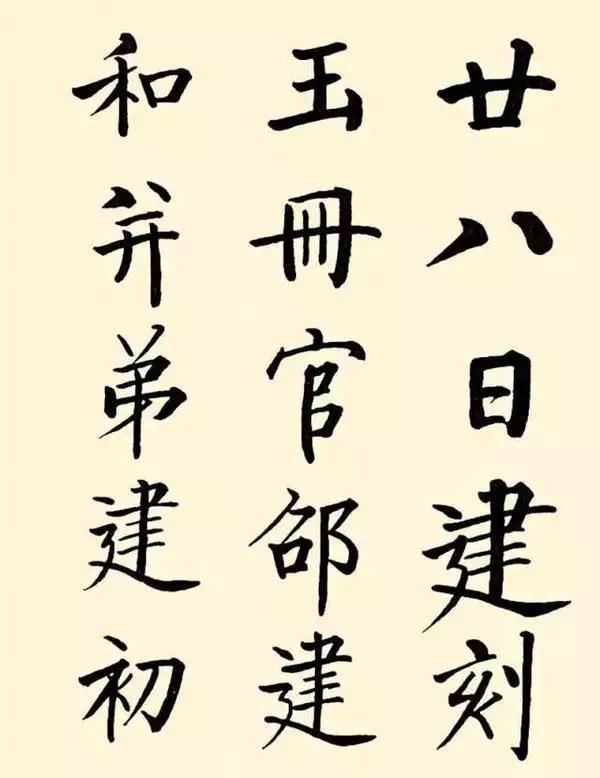 廿八日建刻
玉冊官邵建
和并弟建初